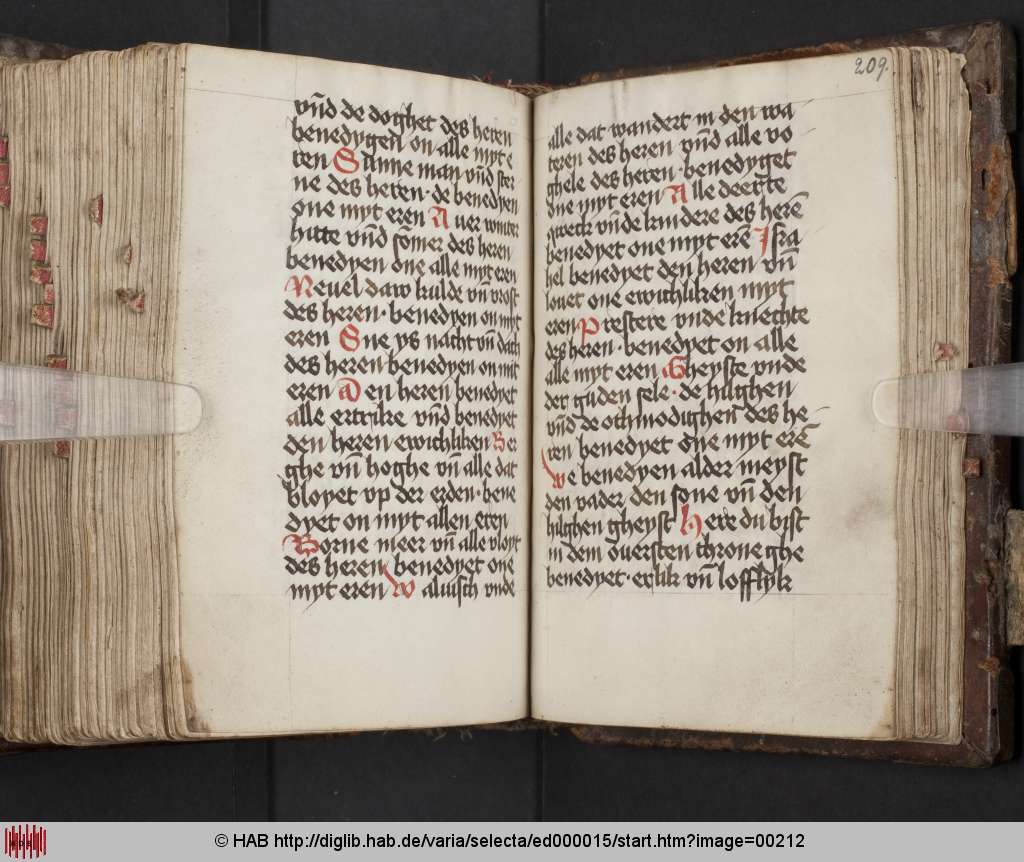 vn̄d de doghet des heren
benedygen on alle myt e
ren Sunne man vn̄d ster
ne des heren · de benedyen
one myt eren Auer winter
hitte vn̄d sōmer des heren
benedyen one alle myt eren
Nevel daw kulde vn̄ vrost
des heren · benedyen on myt
eren Sne ys nacht vn̄ dach
des heren benedyen on mit
eren Den heren benedyet
alle ertrike vn̄d benedyet
den heren ewichliken Ber
ghe vn̄ hoghe vn̄ alle dat
bloyet vp der erden · bene
dyet on myt allen eren
Borne meer vn̄ alle vloyt
des heren benedyet one
myt eren Waluisch vnde
209.
alle dat wandert in den wa
teren des heren vn̄d alle vo
ghele des heren · benedyget
one myt eren Alle deerte
qweck vn̄de kindere des herē
benedyet one myt erē Isra
hel benedyet den heren vn̄
louet one ewichliken myt
eren Prestere vnde knechte
des heren · benedyet on alle
alle myt eren Gheyste vnde
der guden sele · de hilghen
vn̄d de othmodighen des he
ren benedyet one myt erē
We benedyen alder meyst
den vader den sone vn̄ den
hilghen gheyst Here du byst
in dem ouersten throne ghe
benedyet · erlik vn̄ lofflyk
© HAB http://diglib.hab.de/varia/selecta/ed000015/start.htm?image=00212